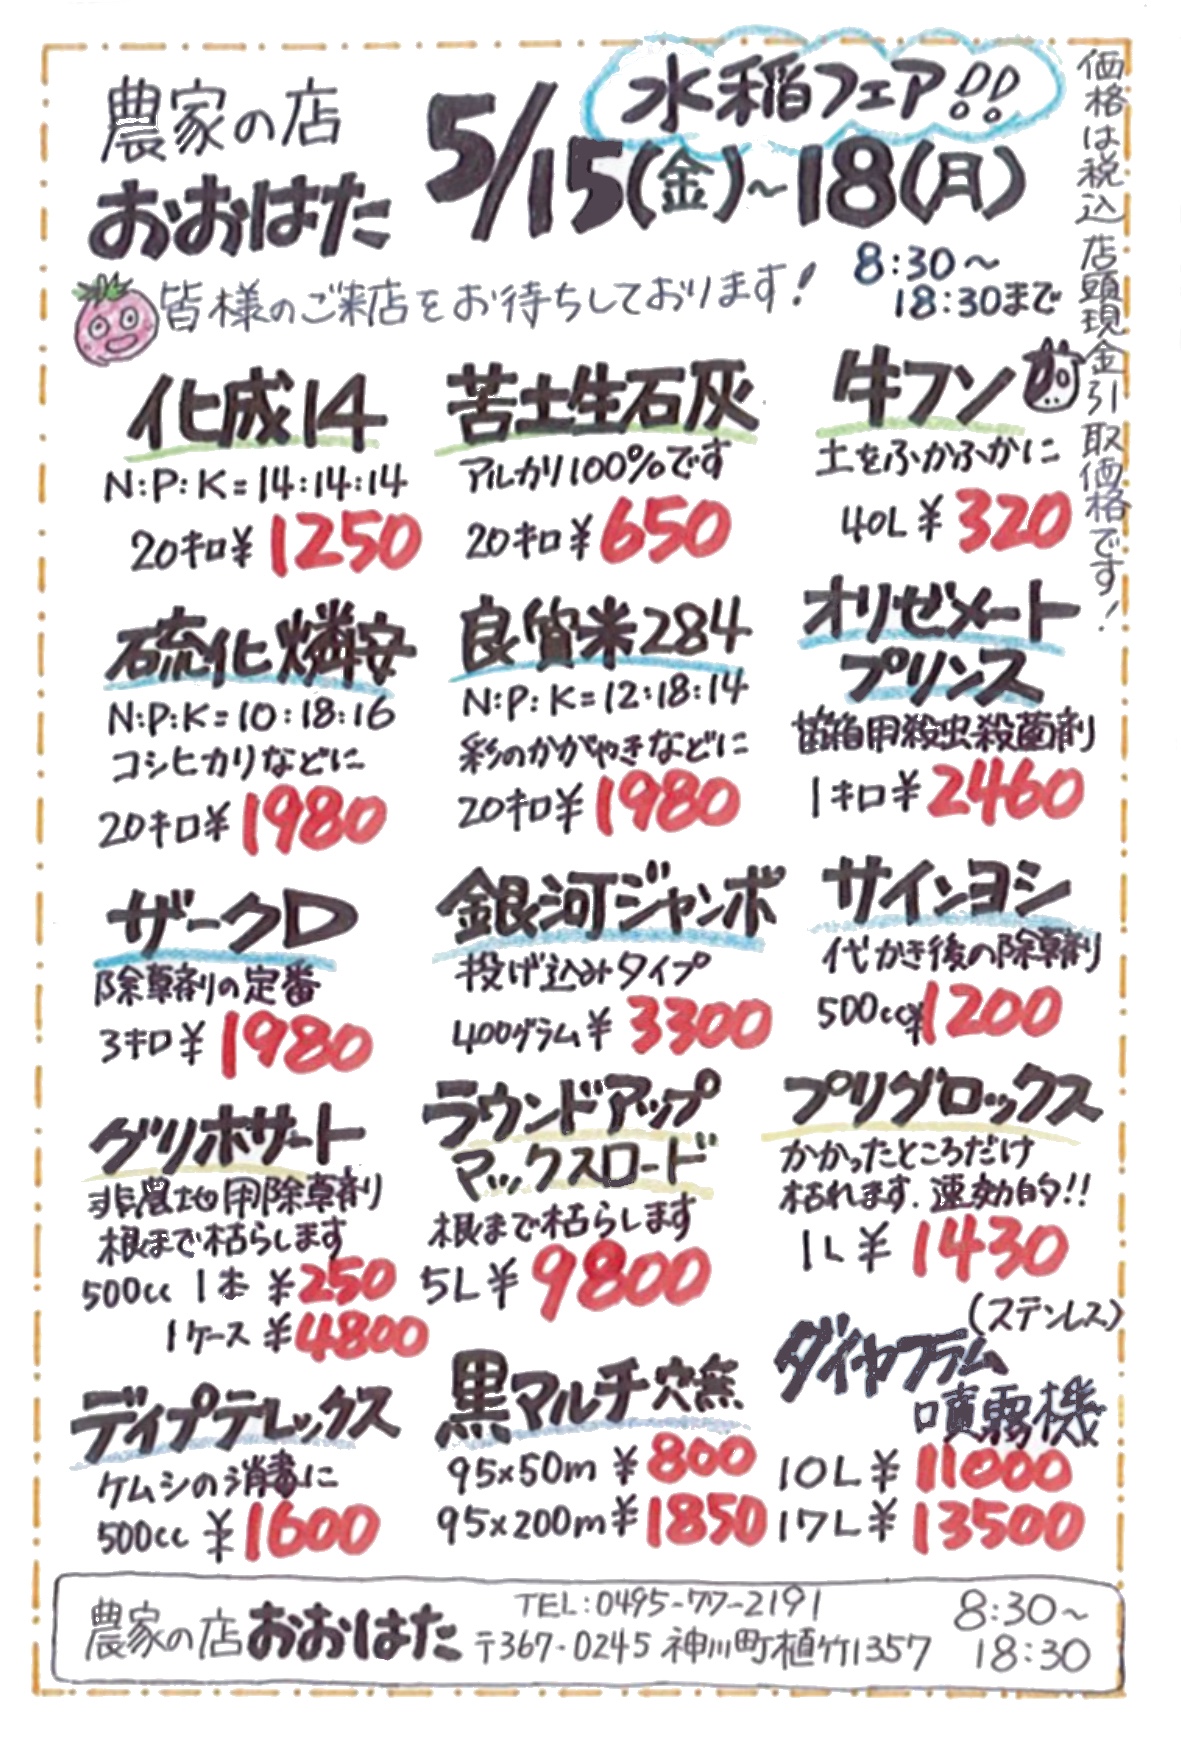 農家の店
おおはた
水稲フェア!!
5/15(金)～18(月)
8:30～
18:30まで
皆様のご来店をお待ちしております!
価格は税込 店頭現金引取価格です!
化成14
N:P:K=14:14:14
20キロ¥1250
苦土生石灰
アルカリ100%です
20キロ¥650
牛フン
土をふかふかに
40L ¥320
硫化燐安
N:P:K=10:18:16
コシヒカリなどに
20キロ¥1980
良質米284
N:P:K=12:18:14
彩のかがやきなどに
20キロ¥1980
オリゼメート
プリンス
苗箱用殺虫殺菌剤
1キロ¥2460
ザークD
除草剤の定番
3キロ¥1980
銀河ジャンボ
投げ込みタイプ
400グラム¥3300
サインヨシ
代かき後の除草剤
500cc¥1200
グリホサート
非農地用除草剤
根まで枯らします
500cc 1本 ¥250
1ケース ¥4800
ラウンドアップ
マックスロード
根まで枯らします
5L¥9800
プリグロックス
かかったところだけ
枯れます.速効的!!
1L ¥1430
ディプテレックス
ケムシの消毒に
500cc ¥1600
黒マルチ穴無
95x50m ¥800
95x200m¥1850
(ステンレス)
ダイヤフラム
噴霧機
10L¥11000
17L¥13500
農家の店おおはた
TEL:0495-77-2191
〒367-0245 神川町植竹1357
8:30～
18:30